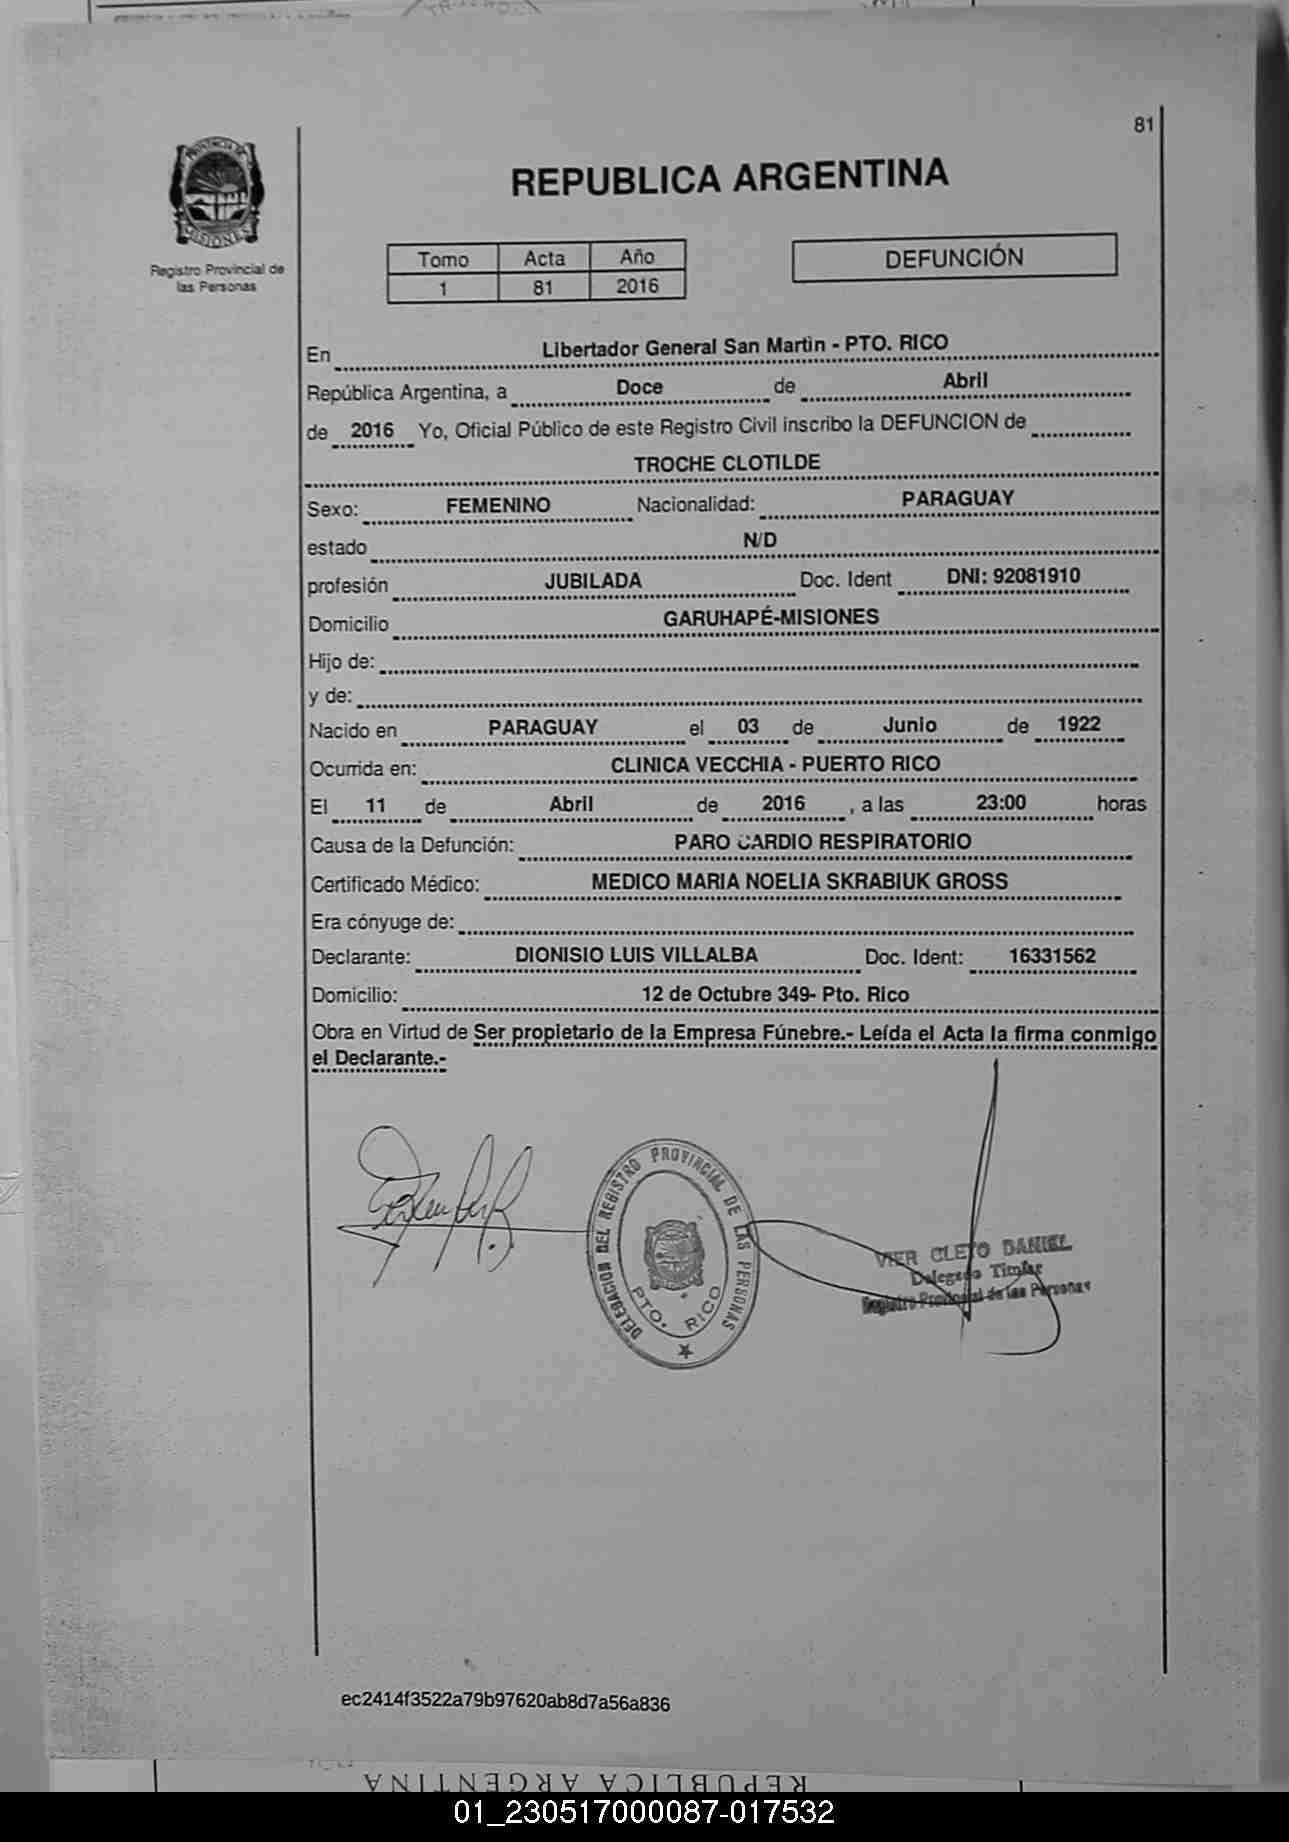 81
PROVINCIA DE
MISIONES
Registro Provincial de
las Personas
REPUBLICA ARGENTINA
Tomo Acta Año
1 81 2016
DEFUNCIÓN
En Libertador General San Martin - PTO. RICO
República Argentina, a Doce de Abril
de 2016 Yo, Oficial Público de este Registro Civil inscribo la DEFUNCION de
TROCHE CLOTILDE
Sexo: FEMENINO Nacionalidad: PARAGUAY
estado N/D
profesión JUBILADA Doc. Ident DNI: 92081910
Domicilio GARUHAPÉ-MISIONES
Hijo de:
y de:
Nacido en PARAGUAY el 03 de Junio de 1922
Ocurrida en: CLINICA VECCHIA - PUERTO RICO
El 11 de Abril de 2016 , a las 23:00 horas
Causa de la Defunción: PARO CARDIO RESPIRATORIO
Certificado Médico: MEDICO MARIA NOELIA SKRABIUK GROSS
Era cónyuge de:
Declarante: DIONISIO LUIS VILLALBA Doc. Ident: 16331562
Domicilio: 12 de Octubre 349- Pto. Rico
Obra en Virtud de Ser propietario de la Empresa Fúnebre.- Leída el Acta la firma conmigo
el Declarante.-
DELEGACION DEL REGISTRO PROVINCIAL DE LAS PERSONAS
PTO. RICO
VIER CLETO DANIEL
Delegado Titular
Registro Provincial de las Personas
ec2414f3522a79b97620ab8d7a56a836
REPUBLICA ARGENTINA
01_230517000087-017532